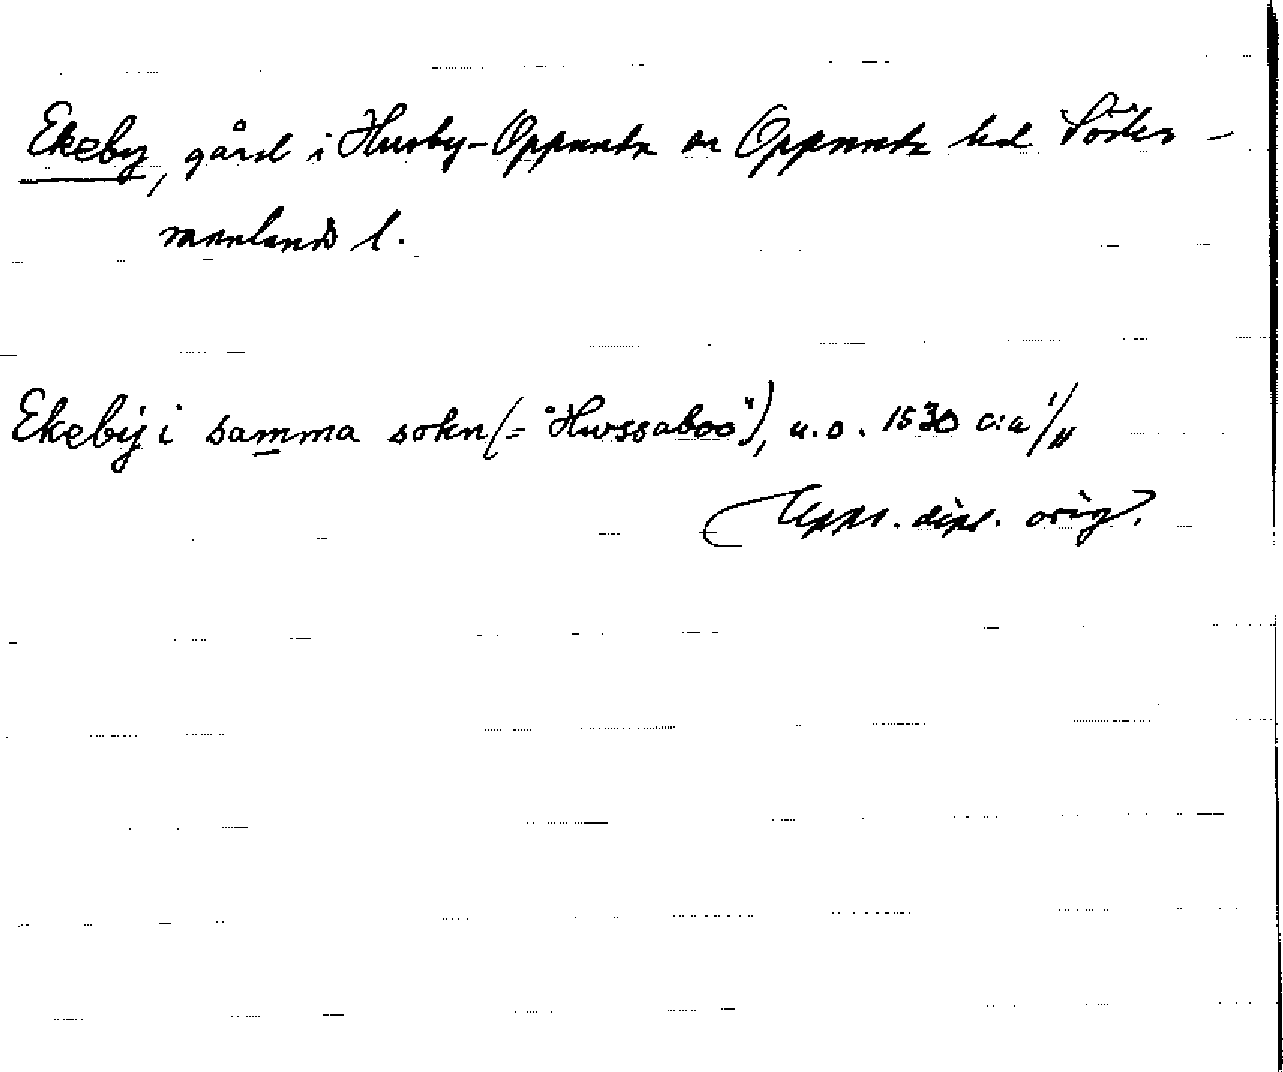 Ekeby, gård i Husby-Oppunda sn Oppunda hd Söder-
manlands l.
Ekebÿ i samma sokn (= "Hussaboo"), u.o. 1530 c:a 1/11
Upps. dipl. orig.